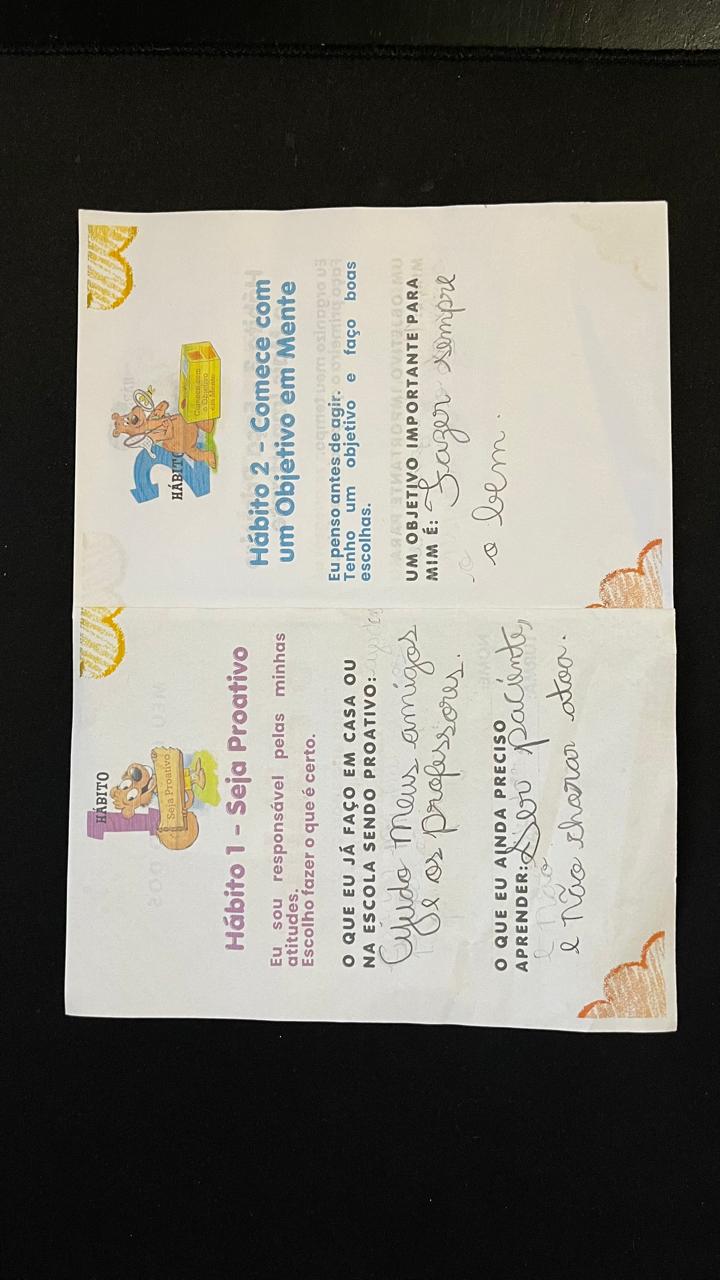 HÁBITO
1
Seja Proativo
Hábito 1 - Seja Proativo
Eu sou responsável pelas minhas
atitudes.
Escolho fazer o que é certo.
O QUE EU JÁ FAÇO EM CASA OU
NA ESCOLA SENDO PROATIVO:
Ajudo meus amigos
e os professores.
O QUE EU AINDA PRECISO
APRENDER: Ser paciente,
e não charar atoa.
2
HÁBITO
Comece com
o Objetivo
em Mente
Hábito 2 - Comece com
um Objetivo em Mente
Eu penso antes de agir.
Tenho um objetivo e faço boas
escolhas.
UM OBJETIVO IMPORTANTE PARA
MIM É: Fazer sempre
o bem.